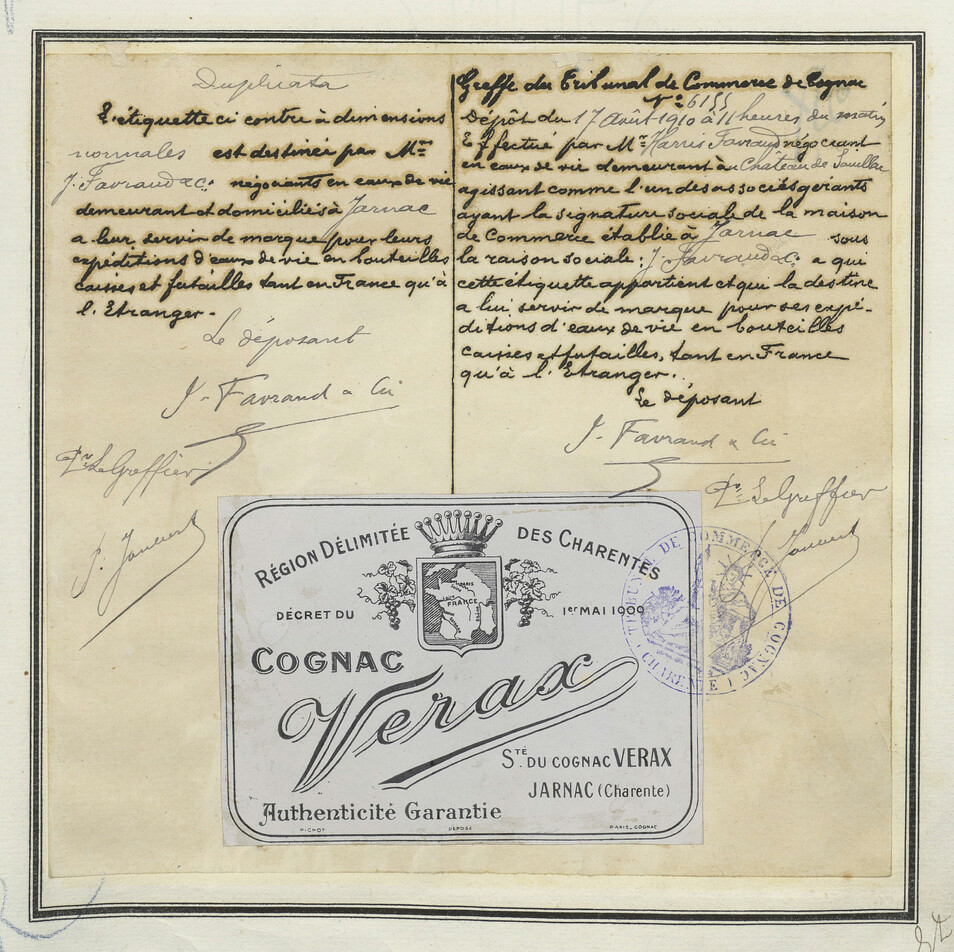 Duplicata
L'étiquette ci contre à dimensions
normales est destinée par Mrs
J. Favraud & C.ie négociants en eaux de vie
demeurant et domiciliés à Jarnac
a leur servir de marque pour leurs
expéditions d'eaux de vie en bouteilles
caisses et futailles tant en France qu'à
l'Etranger.-
Le déposant
J. Favraud & Cie
Pr Le Greffier
Greffe du Tribunal de Commerce de Cognac
N° 6155
Dépôt du 17 Août 1910 à 11 heures du matin
Effectué par Mr Harris Favraud négociant
en eaux de vie demeurant au Château de Souillac
agissant comme l'un des associés gérants
ayant la signature sociale de la maison
de Commerce établie à Jarnac sous
la raison sociale: J. Favraud & C.ie a qui
cette étiquette appartient et qui la destine
a lui servir de marque pour ses expé-
ditions d'eaux de vie en bouteilles
caisses et futailles, tant en France
qu'à l'Etranger.
Le déposant
J. Favraud & Cie
Pr Le Greffier
RÉGION DÉLIMITÉE DES CHARENTES
DÉCRET DU 1er MAI 1909
PARIS
FRANCE
COGNAC
Verax
STÉ DU COGNAC VERAX
JARNAC (Charente)
Authenticité Garantie
PICHOT DÉPOSÉ PARIS, COGNAC
TRIBUNAL DE COMMERCE DE COGNAC
(CHARENTE)